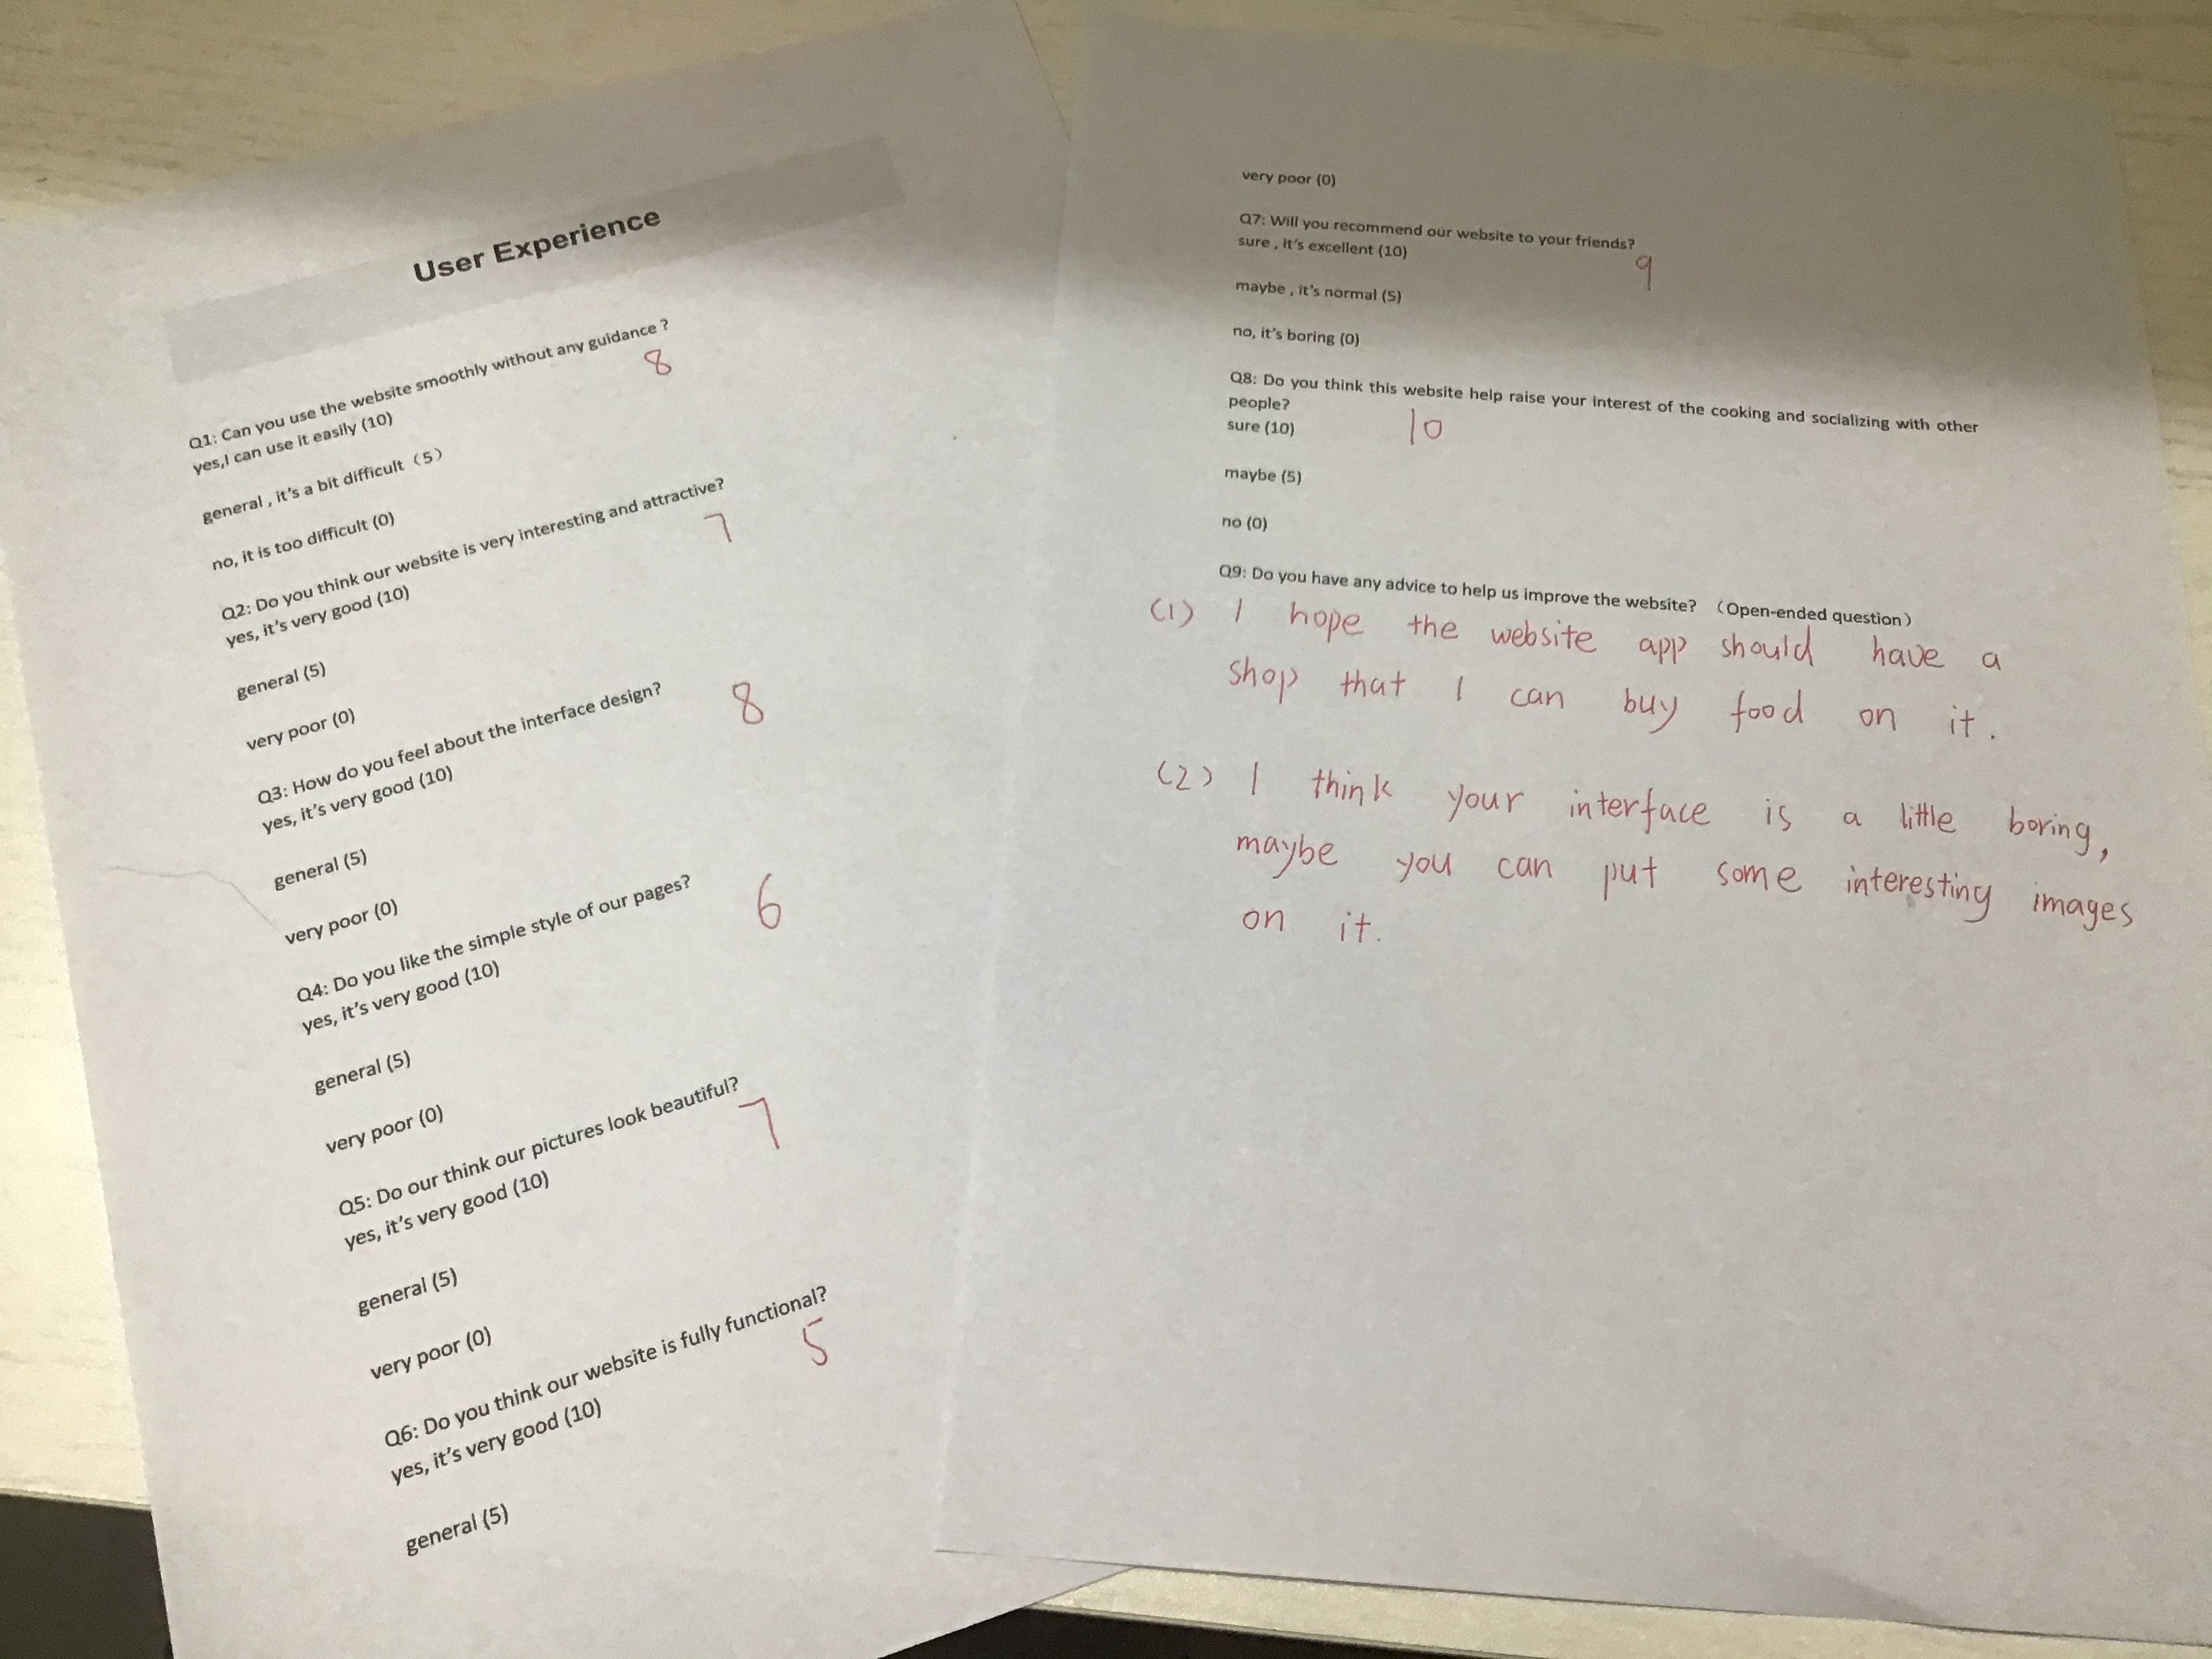 User Experience
Q1: Can you use the website smoothly without any guidance ?
8
yes,I can use it easily (10)
general , it's a bit difficult (5)
no, it is too difficult (0)
Q2: Do you think our website is very interesting and attractive?
7
yes, it's very good (10)
general (5)
very poor (0)
Q3: How do you feel about the interface design?
8
yes, it's very good (10)
general (5)
very poor (0)
Q4: Do you like the simple style of our pages?
6
yes, it's very good (10)
general (5)
very poor (0)
Q5: Do our think our pictures look beautiful?
7
yes, it's very good (10)
general (5)
very poor (0)
Q6: Do you think our website is fully functional?
5
yes, it's very good (10)
general (5)
very poor (0)
Q7: Will you recommend our website to your friends?
sure , it's excellent (10)
9
maybe , it's normal (5)
no, it's boring (0)
Q8: Do you think this website help raise your interest of the cooking and socializing with other
people?
sure (10)
10
maybe (5)
no (0)
Q9: Do you have any advice to help us improve the website? (Open-ended question)
(1) I hope the website app should have a
shop that I can buy food on it.
(2) I think your interface is a little boring,
maybe you can put some interesting images
on it.